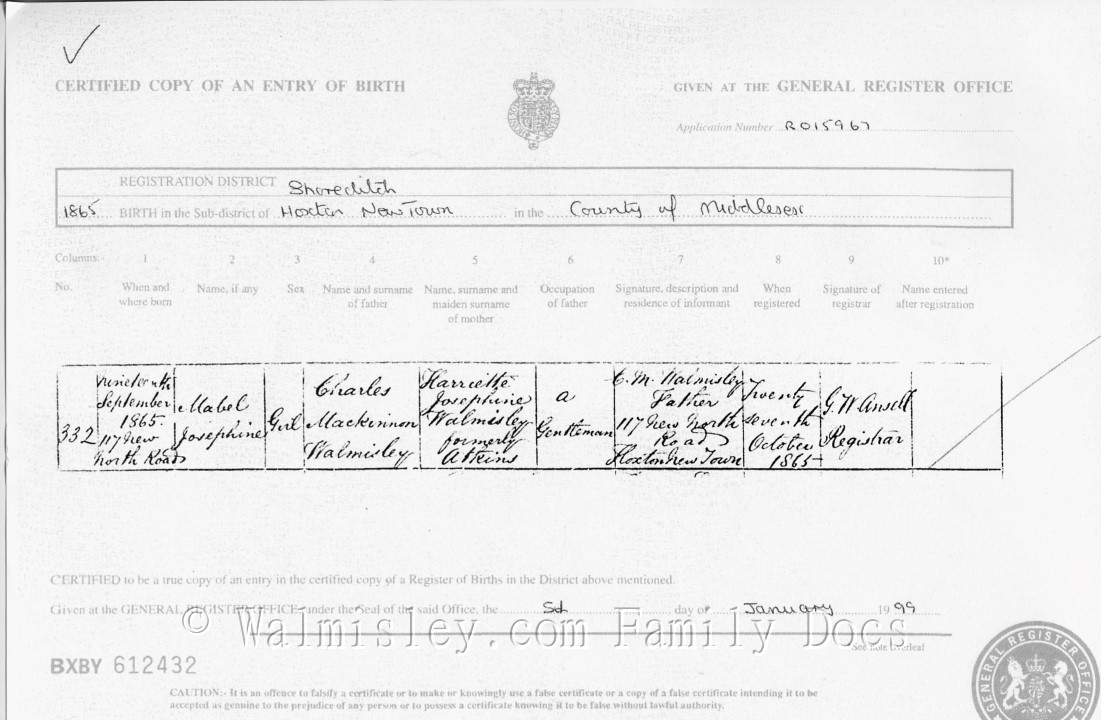 CERTIFIED COPY OF AN ENTRY OF BIRTH
GIVEN AT THE GENERAL REGISTER OFFICE
Application Number R015967
REGISTRATION DISTRICT Shoreditch
1865 BIRTH in the Sub-district of Hoxton New Town in the County of Middlesex
Columns:- 1 2 3 4 5 6 7 8 9 10*
No. When and where born Name, if any Sex Name and surname of father Name, surname and maiden surname of mother Occupation of father Signature, description and residence of informant When registered Signature of registrar Name entered after registration
332
nineteenth
September
1865.
117 New
North Road
Mabel
Josephine
Girl
Charles
Mackinnon
Walmisley
Harriette
Josephine
Walmisley
formerly
Atkins
a
Gentleman
C. M. Walmisley
Father
117 New North
Road
Hoxton New Town
Twenty
seventh
October
1865
G W Ansell
Registrar
CERTIFIED to be a true copy of an entry in the certified copy of a Register of Births in the District above mentioned.
Given at the GENERAL REGISTER OFFICE, under the Seal of the said Office, the day of January 1999
© Walmisley.com Family Docs
See note overleaf
BXBY 612432
CAUTION:- It is an offence to falsify a certificate or to make or knowingly use a false certificate or a copy of a false certificate intending it to be
accepted as genuine to the prejudice of any person or to possess a certificate knowing it to be false without lawful authority.
GENERAL REGISTER OFFICE